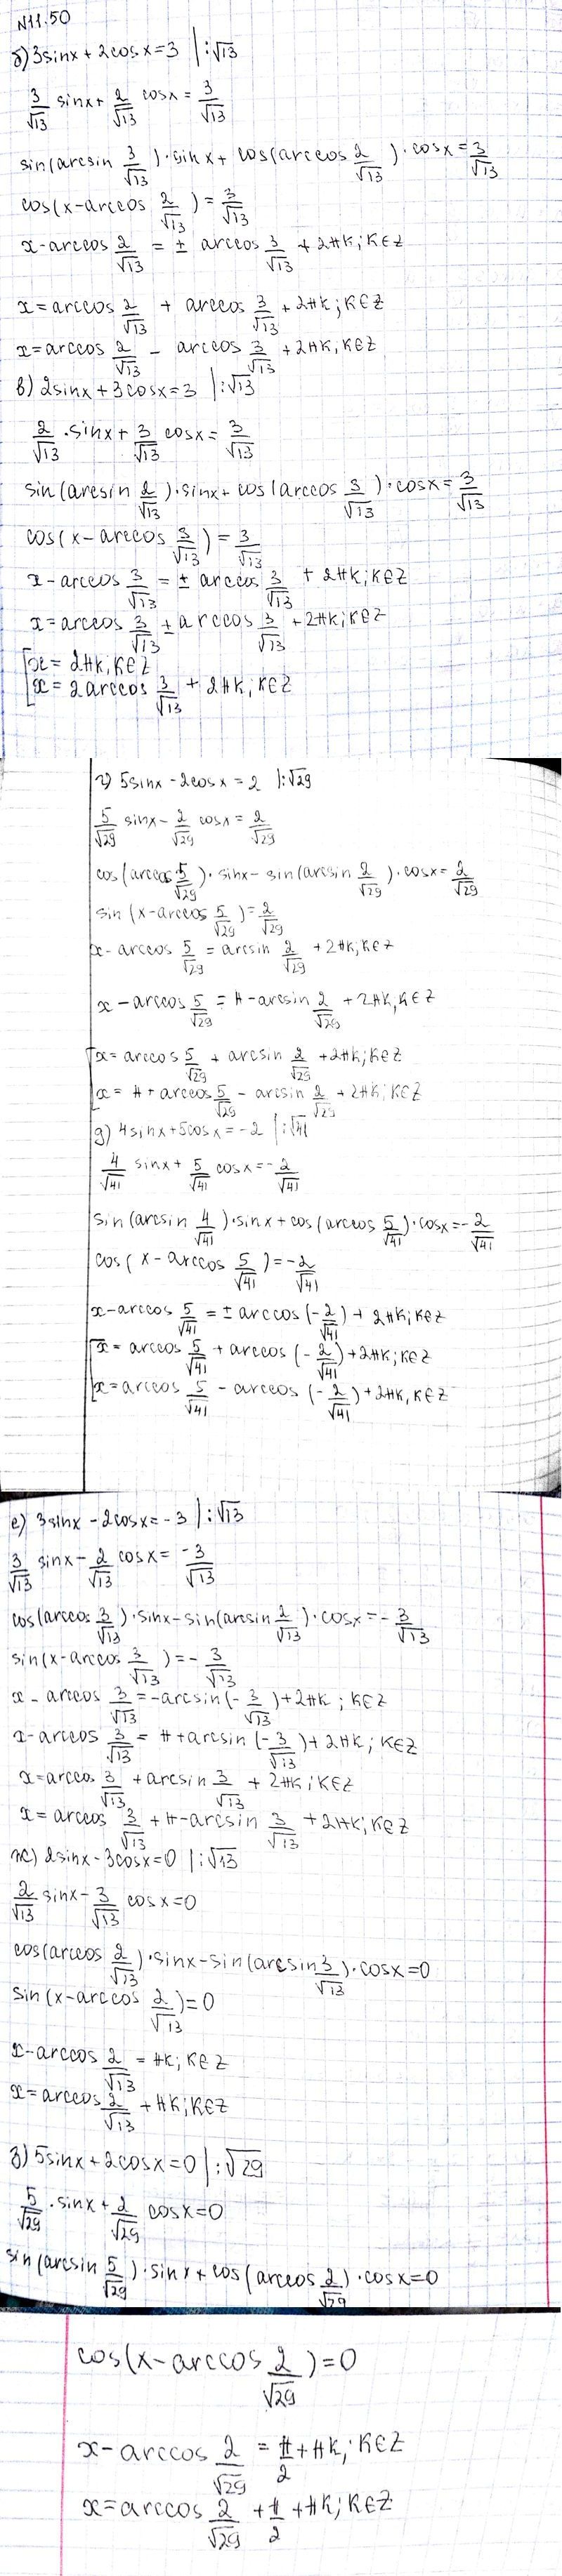 N11.50
б) 3sinx + 2cosx = 3 |:√13
3/√13 sinx + 2/√13 cosx = 3/√13
sin(arcsin 3/√13)·sinx + cos(arccos 2/√13)·cosx = 3/√13
cos(x - arccos 2/√13) = 3/√13
x - arccos 2/√13 = ± arccos 3/√13 + 2πk; k∈Z
x = arccos 2/√13 + arccos 3/√13 + 2πk; k∈Z
x = arccos 2/√13 - arccos 3/√13 + 2πk, k∈Z
в) 2sinx + 3cosx = 3 |:√13
2/√13 ·sinx + 3/√13 cosx = 3/√13
sin(arcsin 2/√13)·sinx + cos(arccos 3/√13)·cosx = 3/√13
cos(x - arccos 3/√13) = 3/√13
x - arccos 3/√13 = ± arccos 3/√13 + 2πk; k∈Z
x = arccos 3/√13 ± arccos 3/√13 + 2πk; k∈Z
[x = 2πk; k∈Z
[x = 2arccos 3/√13 + 2πk, k∈Z
г) 5sinx - 2cosx = 2 |:√29
5/√29 sinx - 2/√29 cosx = 2/√29
cos(arccos 5/√29)·sinx - sin(arcsin 2/√29)·cosx = 2/√29
sin(x - arccos 5/√29) = 2/√29
x - arccos 5/√29 = arcsin 2/√29 + 2πk, k∈Z
x - arccos 5/√29 = π - arcsin 2/√29 + 2πk, k∈Z
[x = arccos 5/√29 + arcsin 2/√29 + 2πk; k∈Z
[x = π + arccos 5/√29 - arcsin 2/√29 + 2πk; k∈Z
д) 4sinx + 5cosx = -2 |:√41
4/√41 sinx + 5/√41 cosx = -2/√41
sin(arcsin 4/√41)·sinx + cos(arccos 5/√41)·cosx = -2/√41
cos(x - arccos 5/√41) = -2/√41
x - arccos 5/√41 = ± arccos(-2/√41) + 2πk; k∈Z
[x = arccos 5/√41 + arccos(-2/√41) + 2πk; k∈Z
[x = arccos 5/√41 - arccos(-2/√41) + 2πk, k∈Z
е) 3sinx - 2cosx = -3 |:√13
3/√13 sinx - 2/√13 cosx = -3/√13
cos(arccos 3/√13)·sinx - sin(arcsin 2/√13)·cosx = -3/√13
sin(x - arccos 3/√13) = -3/√13
x - arccos 3/√13 = -arcsin(-3/√13) + 2πk; k∈Z
x - arccos 3/√13 = π + arcsin(-3/√13) + 2πk; k∈Z
x = arccos 3/√13 + arcsin 3/√13 + 2πk; k∈Z
x = arccos 3/√13 + π - arcsin 3/√13 + 2πk; k∈Z
ж) 2sinx - 3cosx = 0 |:√13
2/√13 sinx - 3/√13 cosx = 0
cos(arccos 2/√13)·sinx - sin(arcsin 3/√13)·cosx = 0
sin(x - arccos 2/√13) = 0
x - arccos 2/√13 = πk; k∈Z
x = arccos 2/√13 + πk; k∈Z
з) 5sinx + 2cosx = 0 |:√29
5/√29 ·sinx + 2/√29 cosx = 0
sin(arcsin 5/√29)·sinx + cos(arccos 2/√29)·cosx = 0
cos(x - arccos 2/√29) = 0
x - arccos 2/√29 = π/2 + πk; k∈Z
x = arccos 2/√29 + π/2 + πk; k∈Z